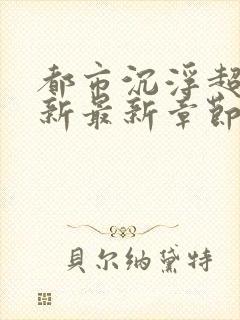 都市沉浮超
新最新章節
貝尔纳黛特